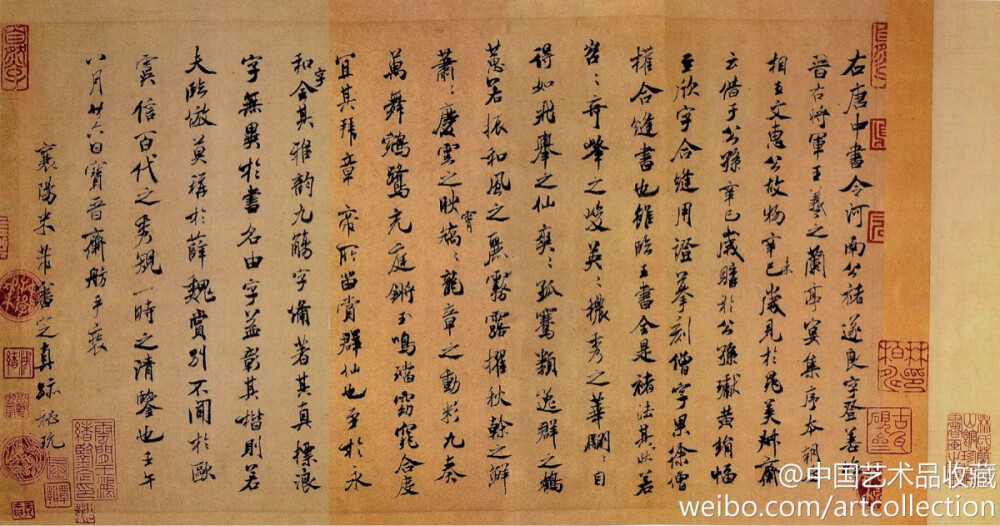 右唐中書令河南公褚遂良字登善臨
晉右將軍王羲之蘭亭宴集序本朝丞
相王文惠公故物辛巳未歲見於晁美叔齋
云借于公孫辛巳歲購於公孫瓛黃絹幅
至欣字合縫用證摹刻僧字果徐僧
權合縫書也雖臨王書全是褚法其狀若
岩〻奇峯之峻英〻穠秀之華翩〻自
得如飛舉之仙爽〻孤騫類逸群之鶴
蕙若振和風之麗霧露擢秋幹之鮮
蕭〻慶雲之映霄矯〻龍章之動彩九奏
萬舞鵷鷺充庭鏘玉鳴璫窈窕合度
宜其拜章 帝所留賞群仙也至於永
和字全其雅韵九觴字備著其真標浪
字無異於書名由字益彰其楷則若
夫臨倣莫稱於薛魏賞別不聞於歐
虞信百代之秀規一時之清鑒也壬午
八月廿六日寶晉齋舫手裝
襄陽米芾審定真跡秘玩
@中国艺术品收藏
weibo.com/artcollection